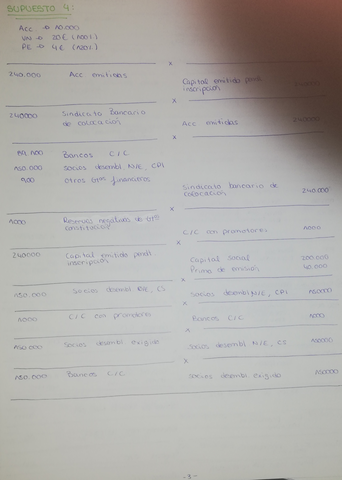 SUPUESTO 4:
Acc → 10.000
VN → 20€ (100%)
PE → 4€ (100%)
x
240.000 Acc emitidas
Capital emitido pend
inscripcion
x
240000 Sindicato Bancario
de colocacion
Acc emitidas 240000
x
Bancos C/C
150.000 socios desembl N/E, CPI
900 otros gtm financieros
Sindicato bancario de
colocacion 240.000
x
1000 Reservas negativas de gtos
constitucion
C/C con promotores 1000
x
240000 Capital emitido pendt
inscripcion
Capital social 200.000
Prima de emision 40.000
x
150.000 Socios desembl N/E, CS
Socios desembl N/E, CPI 150000
x
1000 C/C con promotores
Bancos C/C 1000
x
150.000 Socios desembl exigido
Socios desembl N/E, CS 150000
x
150.000 Bancos C/C
Socios desembl exigido 150000